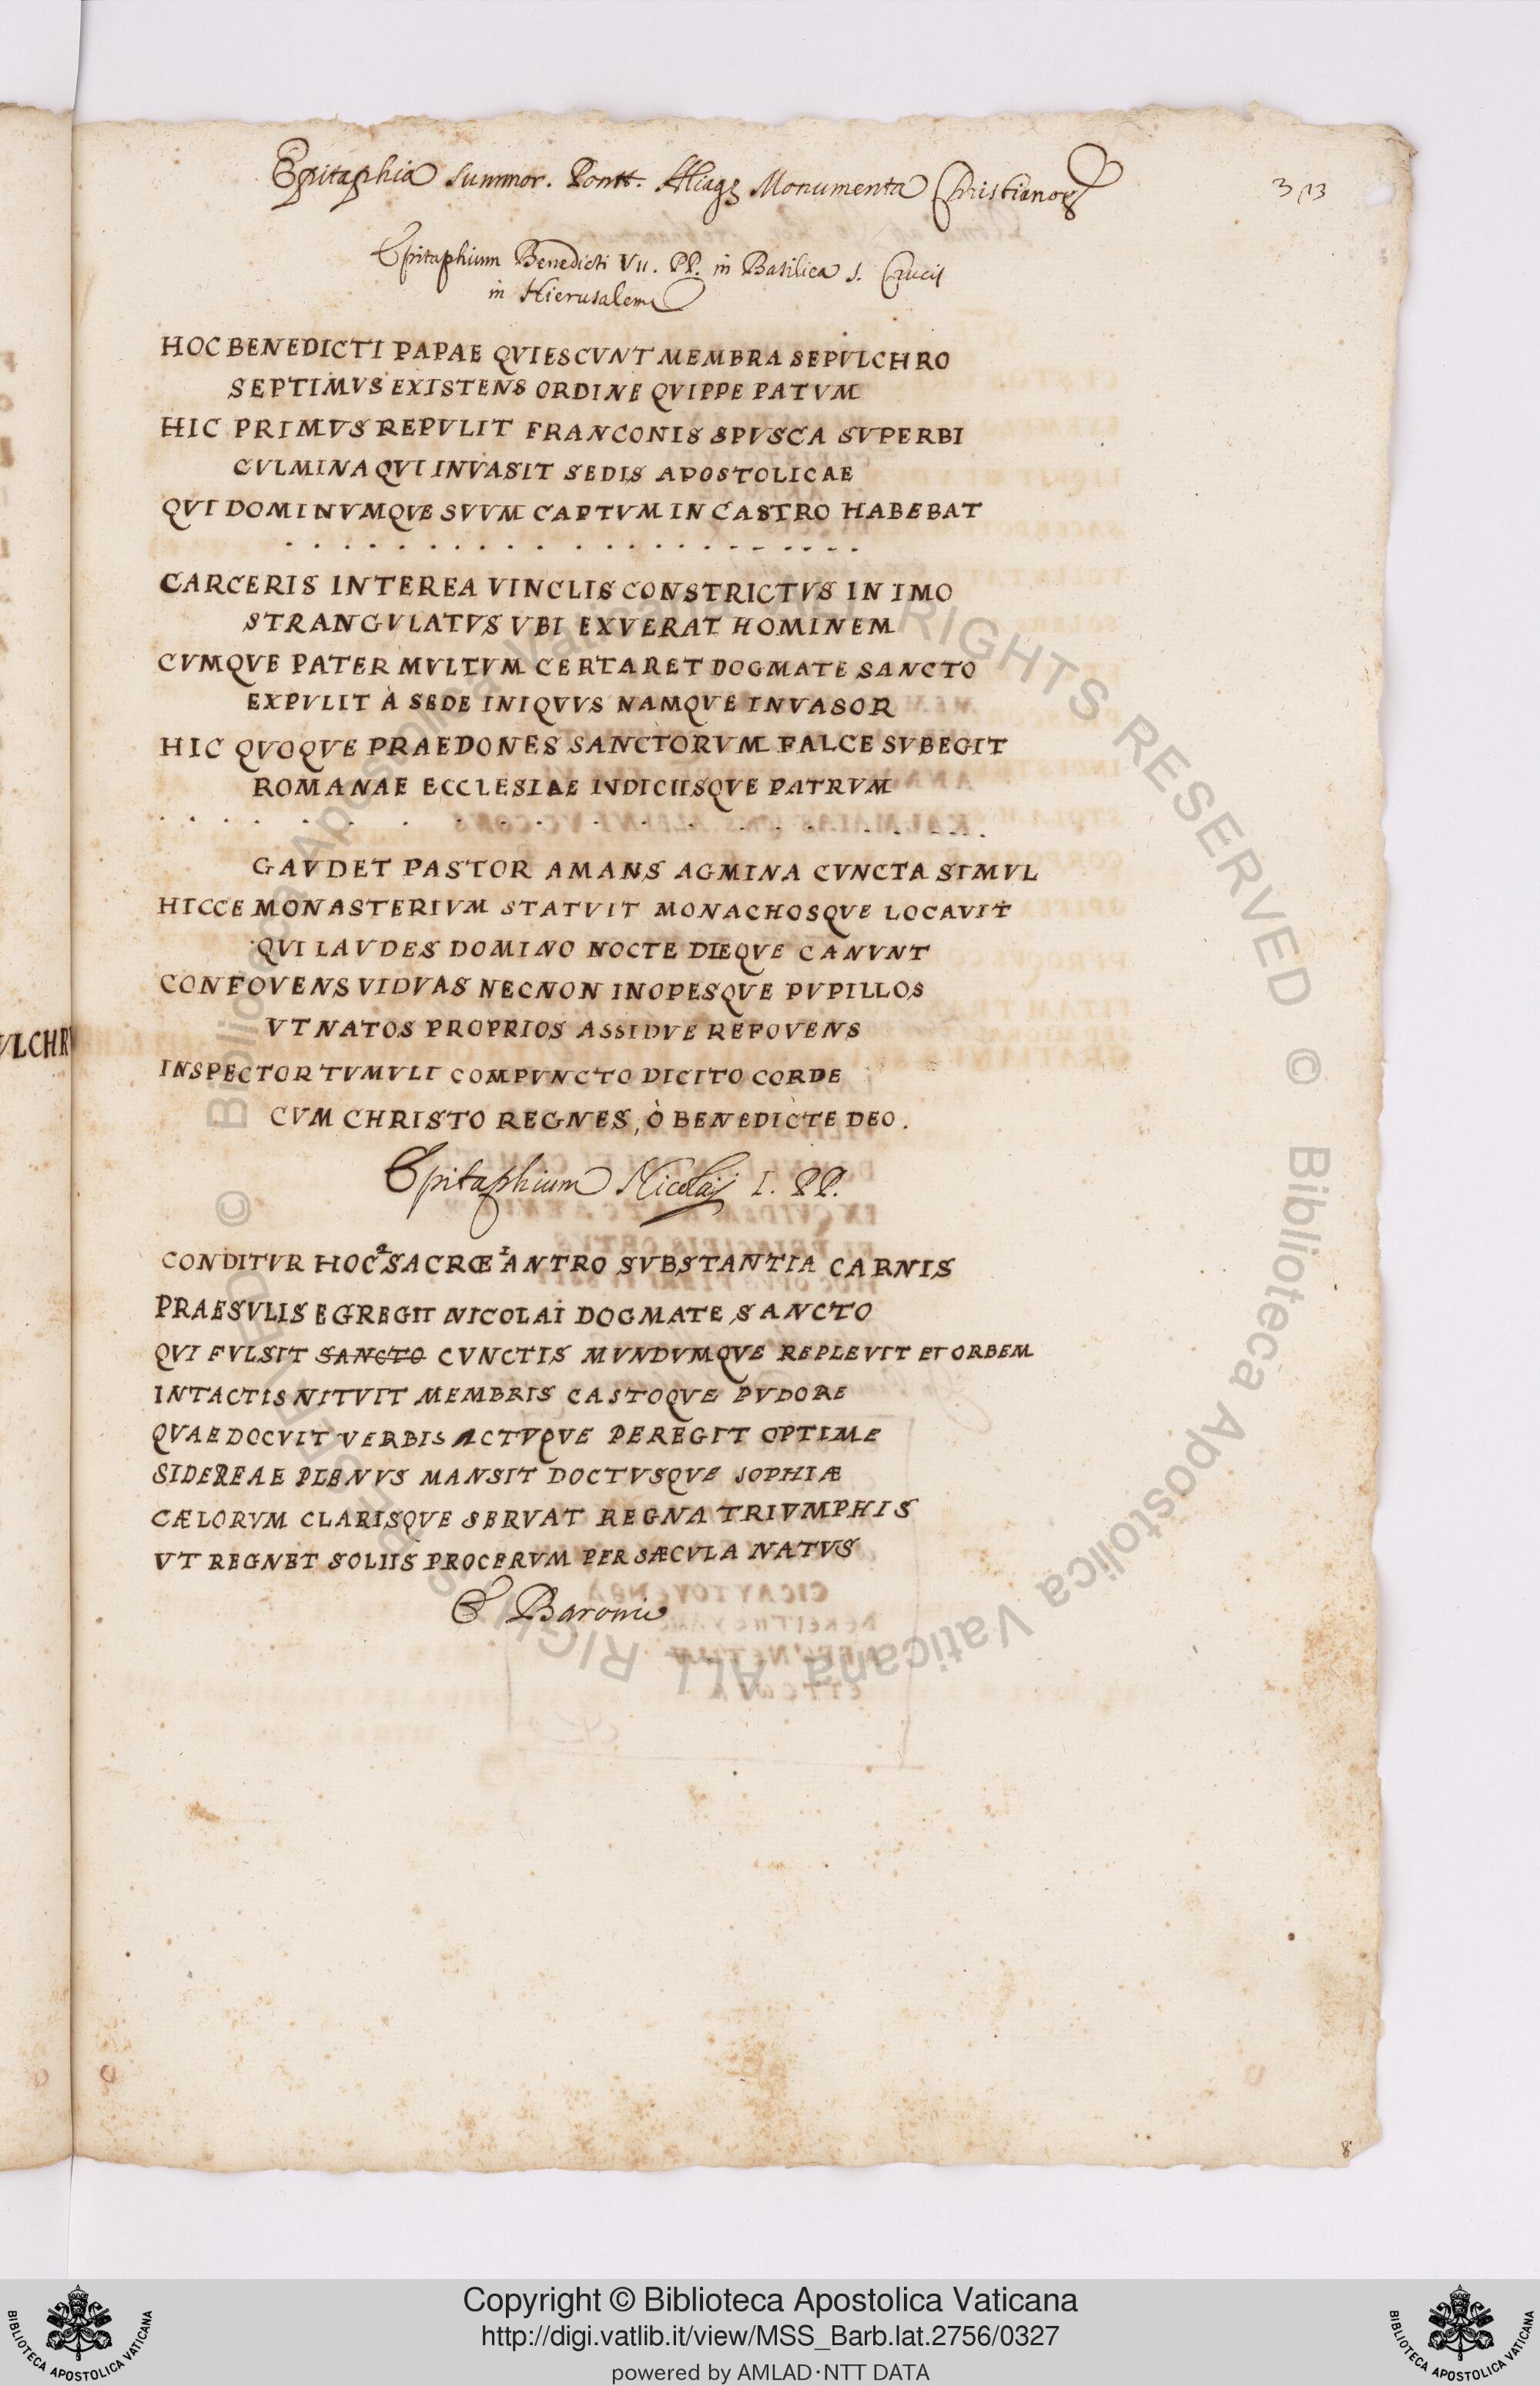 Epitaphia Summor. Pontt. Aliaq3 Monumenta Christianor
313
Epitaphium Benedicti VII. PP. in Basilica S. Crucis
in Hierusalem
HOC BENEDICTI PAPAE QVIESCVNT MEMBRA SEPVLCHRO
SEPTIMVS EXISTENS ORDINE QVIPPE PATVM
HIC PRIMVS REPVLIT FRANCONIS SPVSCA SVPERBI
CVLMINA QVI INVASIT SEDIS APOSTOLICAE
QVI DOMINVMQVE SVVM CAPTVM IN CASTRO HABEBAT
. . . . . . . . . . . . . . . . . . . .
CARCERIS INTEREA VINCLIS CONSTRICTVS IN IMO
STRANGVLATVS VBI EXVERAT HOMINEM
CVMQVE PATER MVLTVM CERTARET DOGMATE SANCTO
EXPVLIT À SEDE INIQVVS NAMQVE INVASOR
HIC QVOQVE PRAEDONES SANCTORVM FALCE SVBEGIT
ROMANAE ECCLESIAE IVDICIISQVE PATRVM
. . . . . . . . . . . . . . . . . . . .
GAVDET PASTOR AMANS AGMINA CVNCTA SIMVL
HICCE MONASTERIVM STATVIT MONACHOSQVE LOCAVIT
QVI LAVDES DOMINO NOCTE DIEQVE CANVNT
CONFOVENS VIDVAS NECNON INOPESQVE PVPILLOS
VT NATOS PROPRIOS ASSIDVE REFOVENS
INSPECTOR TVMVLI COMPVNCTO DICITO CORDE
CVM CHRISTO REGNES, Ò BENEDICTE DEO.
VLCHR
Epitaphium Nicolaij I. PP.
CONDITVR HOC 2 SACRŒ 1 ANTRO SVBSTANTIA CARNIS
PRAESVLIS EGREGII NICOLAI DOGMATE SANCTO
QVI FVLSIT SANCTO CVNCTIS MVNDVMQVE REPLEVIT ET ORBEM
INTACTIS NITVIT MEMBRIS CASTOQVE PVDORE
QVAE DOCVIT VERBIS ACTVQVE PEREGIT OPTIME
SIDEREAE PLENVS MANSIT DOCTVSQVE SOPHIÆ
CÆLORVM CLARISQVE SERVAT REGNA TRIVMPHIS
VT REGNET SOLIIS PROCERVM PER SÆCVLA NATVS
Baronio
8
© Biblioteca Apostolica Vaticana ALL RIGHTS RESERVED © Biblioteca Apostolica Vaticana ALL RIGHTS RESERVED
BIBLIOTECA APOSTOLICA VATICANA
Copyright © Biblioteca Apostolica Vaticana
http://digi.vatlib.it/view/MSS_Barb.lat.2756/0327
powered by AMLAD·NTT DATA
BIBLIOTECA APOSTOLICA VATICANA